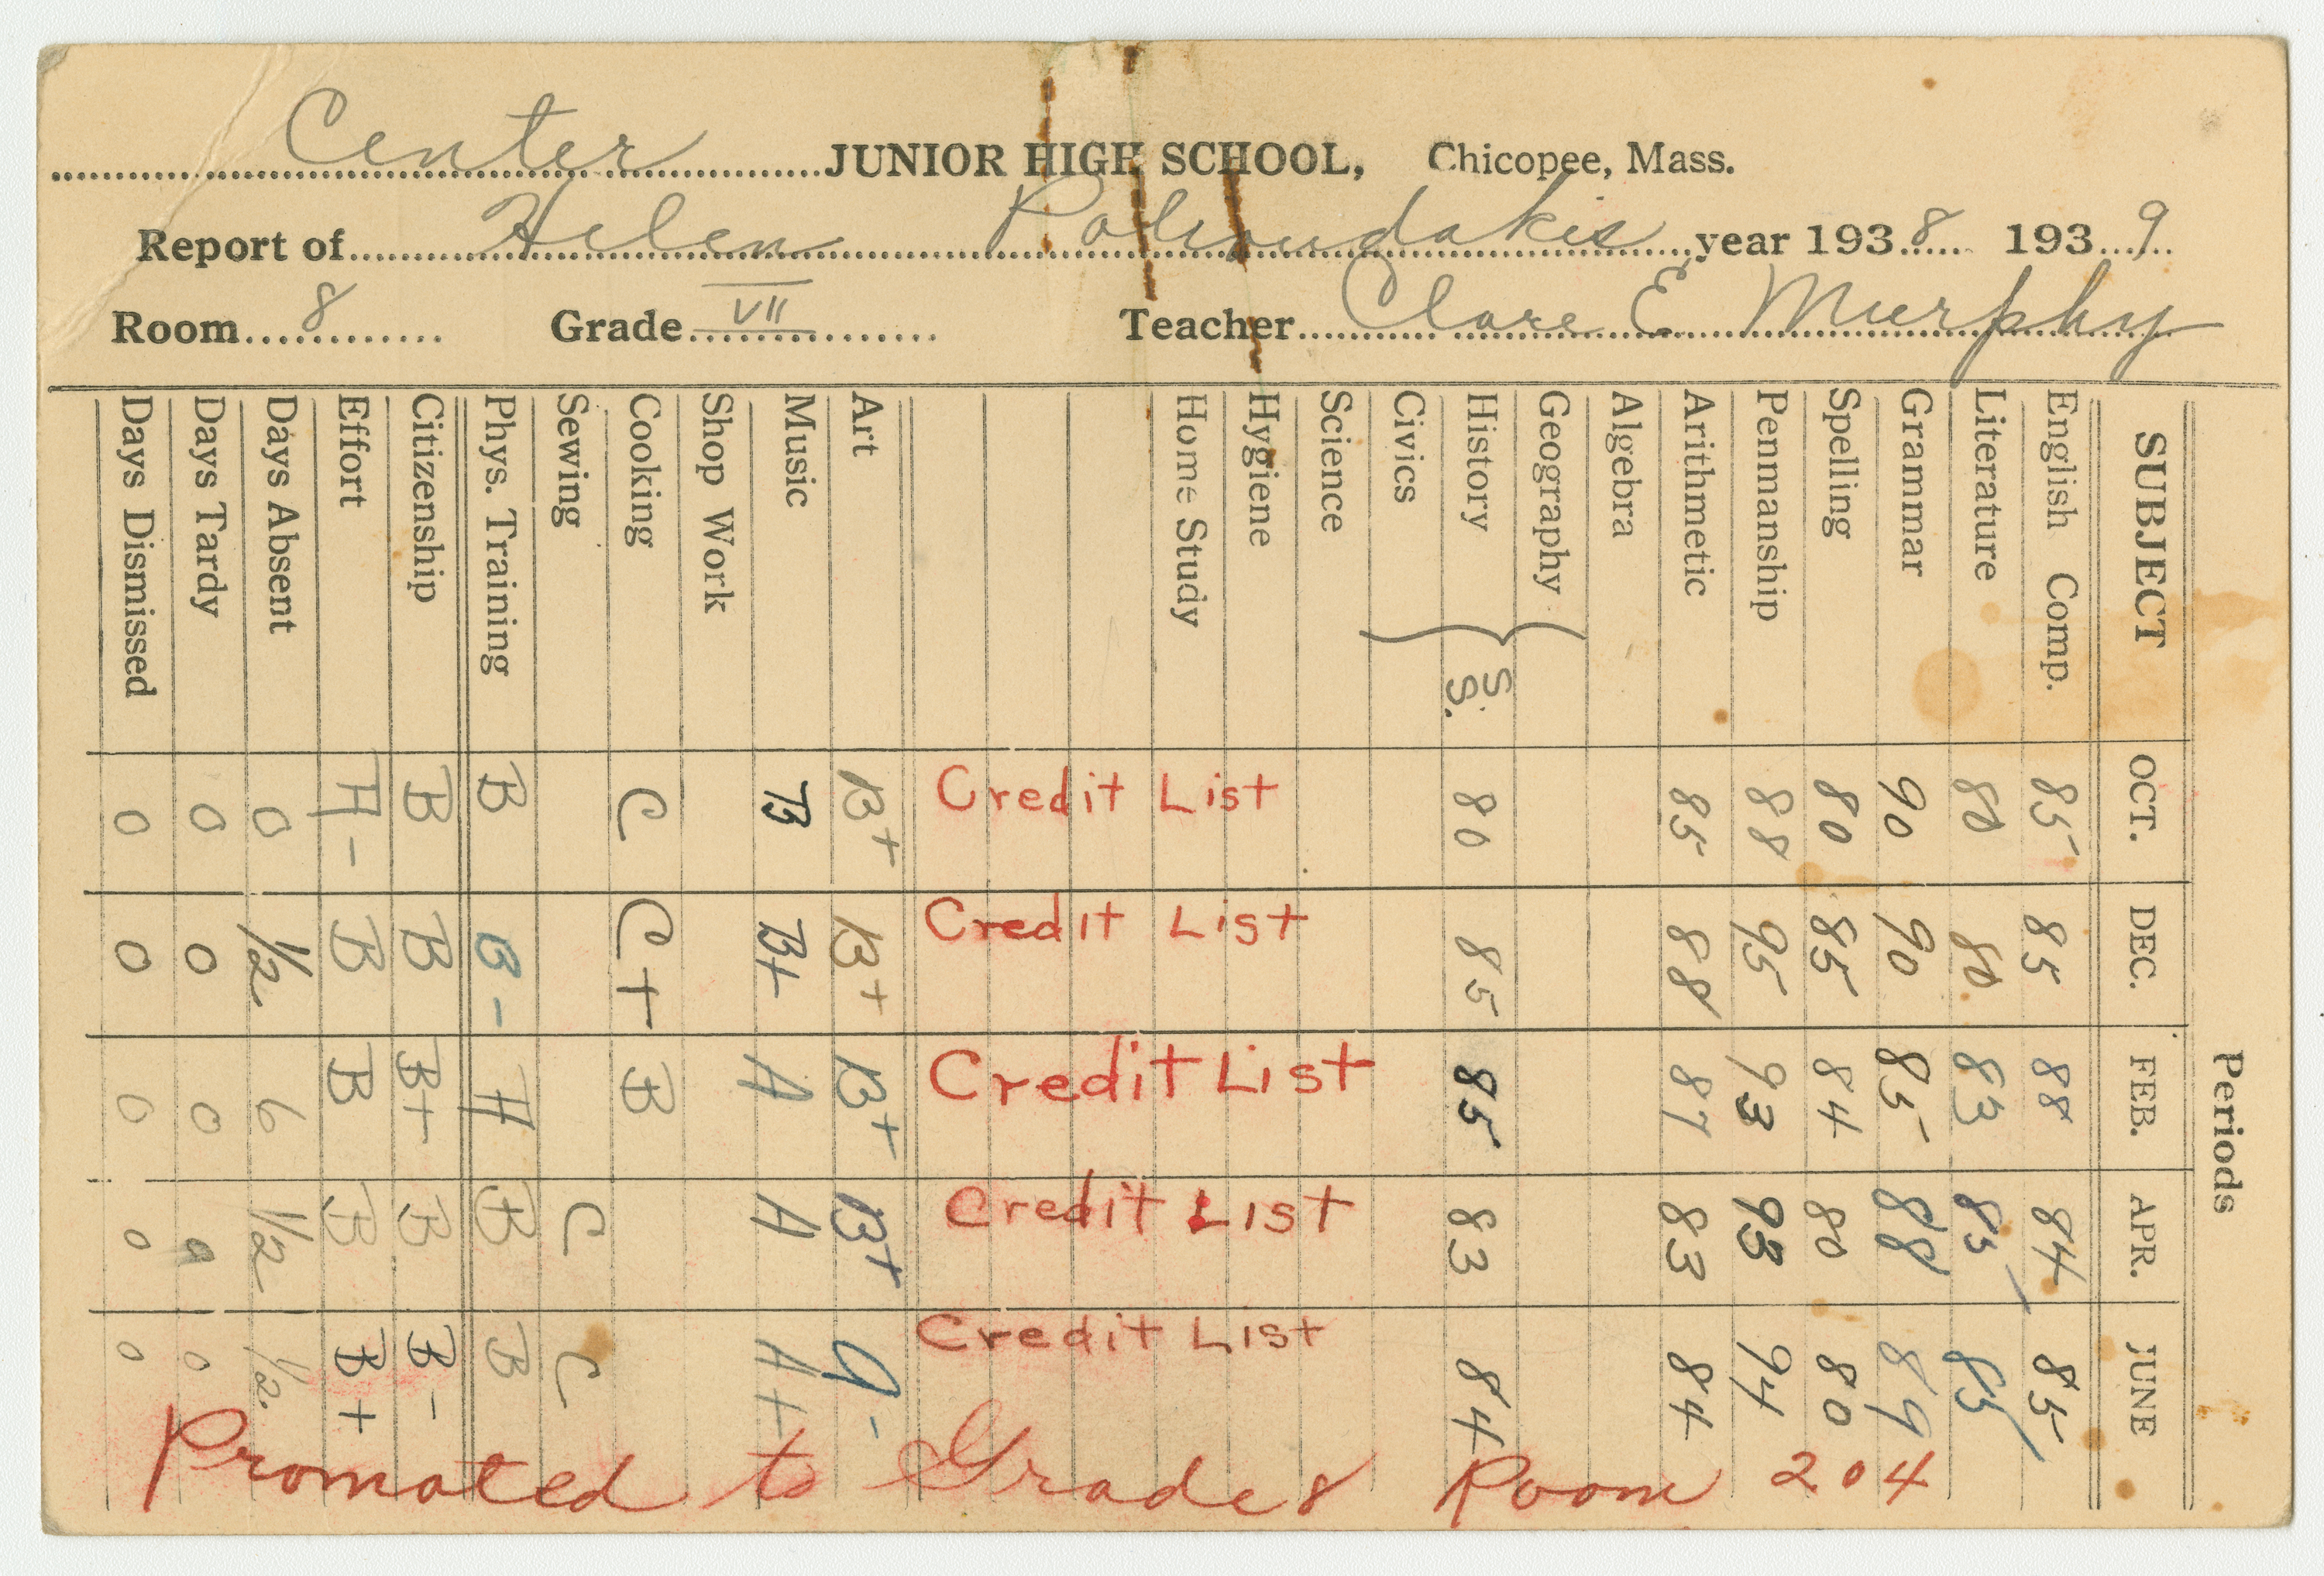 Center JUNIOR HIGH SCHOOL, Chicopee, Mass.
Report of Helen year 1938 1939
Room 8 Grade VII Teacher Clare E. Murphy
Periods
SUBJECT OCT. DEC. FEB. APR. JUNE
English Comp. 85 85 88 84 85
Literature 80 80 83 85 85
Grammar 90 90 85 88 89
Spelling 80 85 84 80 80
Penmanship 88 95 93 93 94
Arithmetic 85 88 87 83 84
Algebra
Geography
History S.S. 80 85 85 83 84
Civics
Science
Hygiene
Home Study
Credit List Credit List Credit List Credit List Credit List
Art B+ B+ B+ B+ A-
Music B B+ A A A+
Shop Work
Cooking C C+ B
Sewing C C
Phys. Training B B- A B B
Citizenship B B B+ B B-
Effort A- B B B B+
Days Absent 0 1/2 6 1/2 1/2
Days Tardy 0 0 0 0 0
Days Dismissed 0 0 0 0 0
Promoted to Grade 8 Room 204